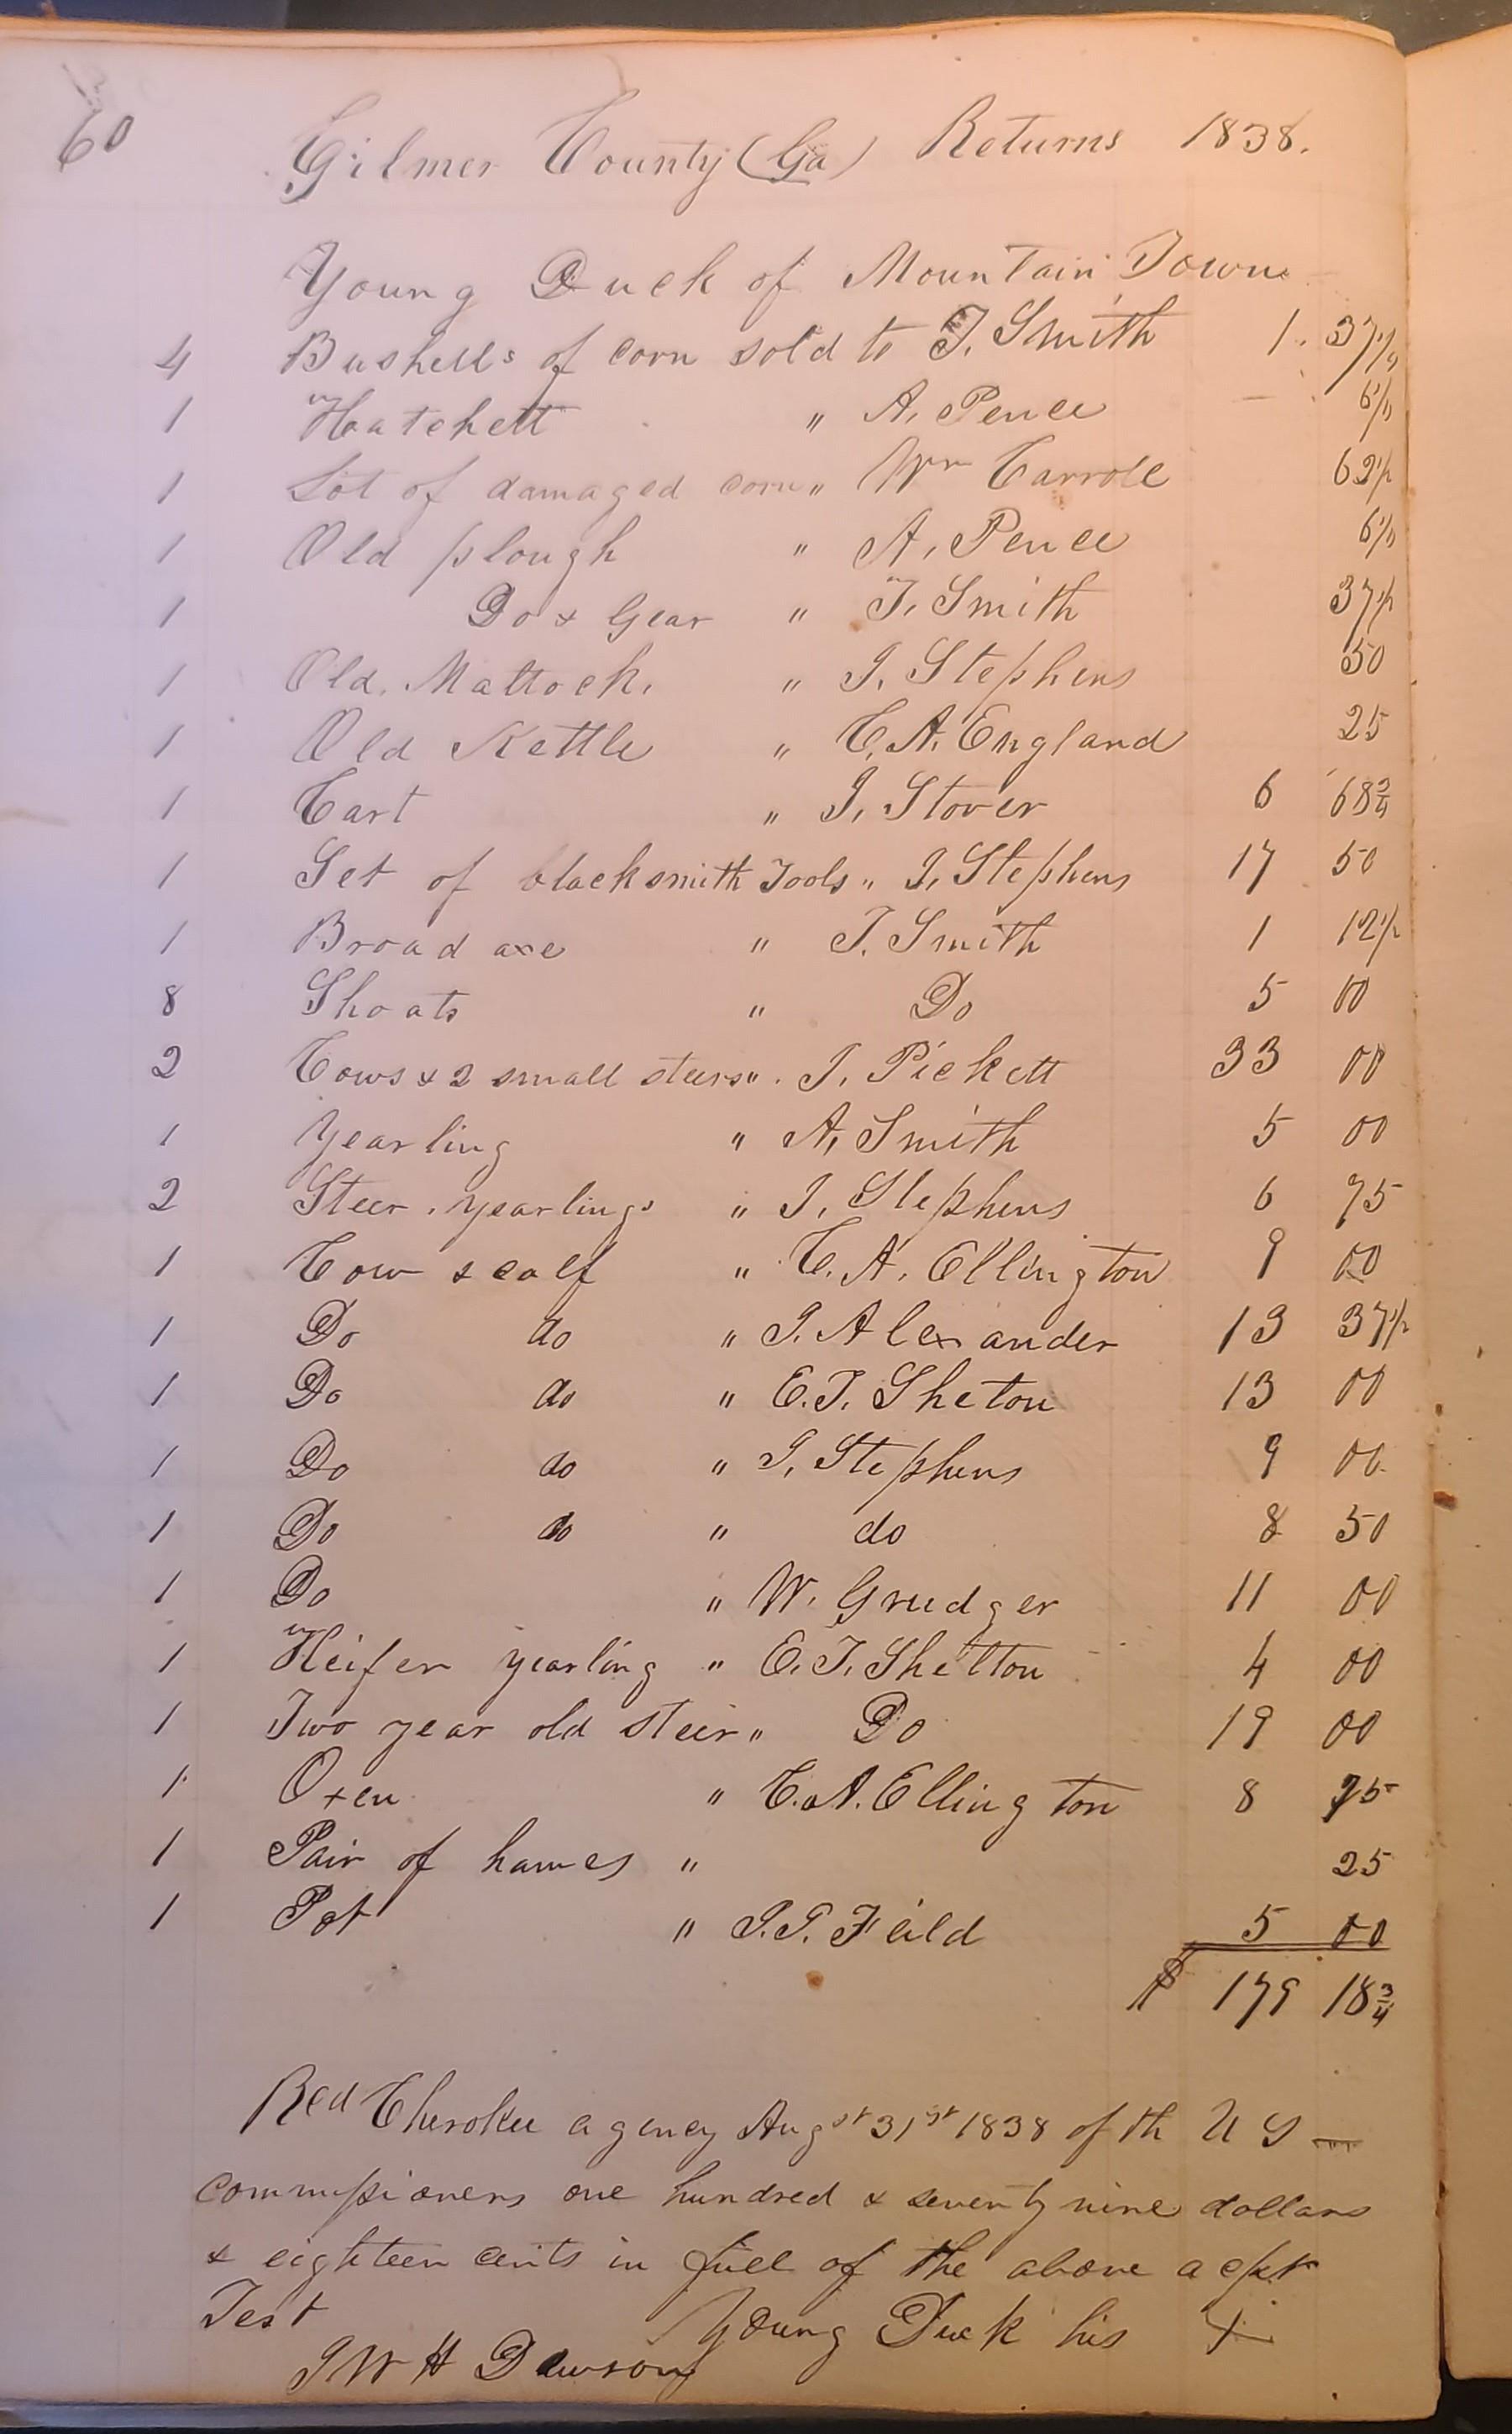 60
Gilmer County (Ga) Returns 1838.
Young Duck of Mountain Town
4 Bushells of corn sold to T. Smith 1. 37 1/2
1 Hatchett " A, Pence 6 1/4
1 Lot of damaged corn " Wm Carroll 62 1/2
1 Old plough " A, Pence 6 1/4
1 Do & Gear " T, Smith 37 1/2
1 Old. Mattock, " I, Stephens 50
1 Old Kettle " C, A. England 25
1 Cart " I, Stover 6 68 3/4
1 Set of blacksmith Tools " I, Stephens 17 50
1 Broad axe " T. Smith 1 12 1/2
8 Shoats " Do 5 00
2 Cows & 2 small steers " I, Pickett 33 00
1 Yearling " A, Smith 5 00
2 Steer yearlings " I, Stephens 6 75
1 Cow & calf " C. A, Ellington 9 00
1 Do do " I. Alexander 13 37 1/2
1 Do do " E. T. Sheton 13 00
1 Do do " I, Stephens 9 00
1 Do do " do 8 50
1 Do " W, Grudger 11 00
1 Heifer yearling " E. T. Shelton 4 00
1 Two year old steer " Do 19 00
1 Oxen " C. A. Ellington 8 75
1 Pair of hames " 25
1 Pot " I. I. Feild 5 00
$ 179 18 3/4
Recd Cherokee agency Augst 31st 1838 of th U S
commissioners one hundred & seventy nine dollars
& eighteen cents in full of the above acpt
Test Young Duck his X
J W H Dawson